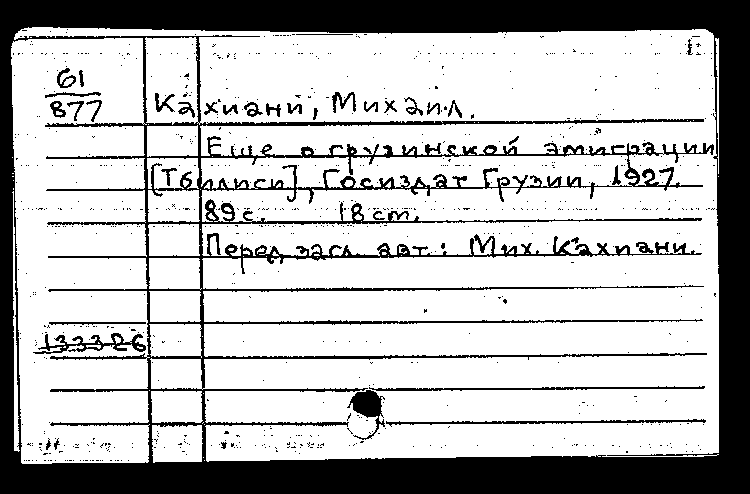 61
877
Кахиани, Михаил.
Еще о грузинской эмиграции
[Тбилиси], Госиздат Грузии, 1927.
89 с. 18 cm.
Перед загл. авт.: Мих. Кахиани.
133326